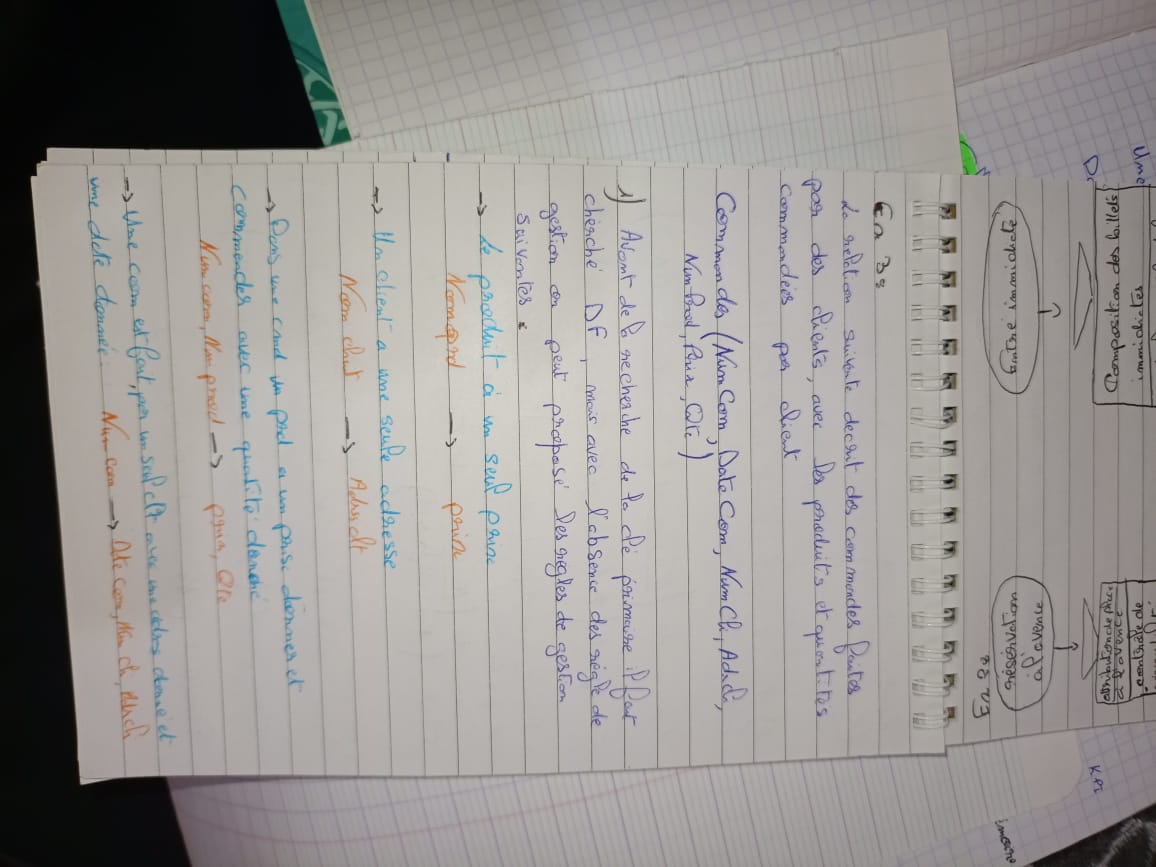 KPI
immichetes
Composition des billets
controle de
a l'avence
attribution de place
Entré immichete
réservation
à l'avence
Ex 2:
Ex 3:
La reletion suivente decrit des commendes faites
par des clients, avec les produits et quantités
commandées par client
Commondes (NumCom, DateCom, NumCli, AdrCli,
NumProd, Prix, Qte)
1) Avant de la recherche de la clé primaire il faut
cherché DF, mais avec l'absence des régle de
gestion on peut proposé les regles de gestion
saiventes :
→ Le produit à un seul prix
Nomprd → prix
→ Un client a une seule adresse
Nom clut → Adrs clt
→ Dans une cmd un prd a un prix donner et
commender avec une quatité donné
Num com, Num prod → prix, Qte
→ Une com est fait, par un seul clt avec une adrs donné et
une date donnée. Num com → Date com, Num cli, Adrcli